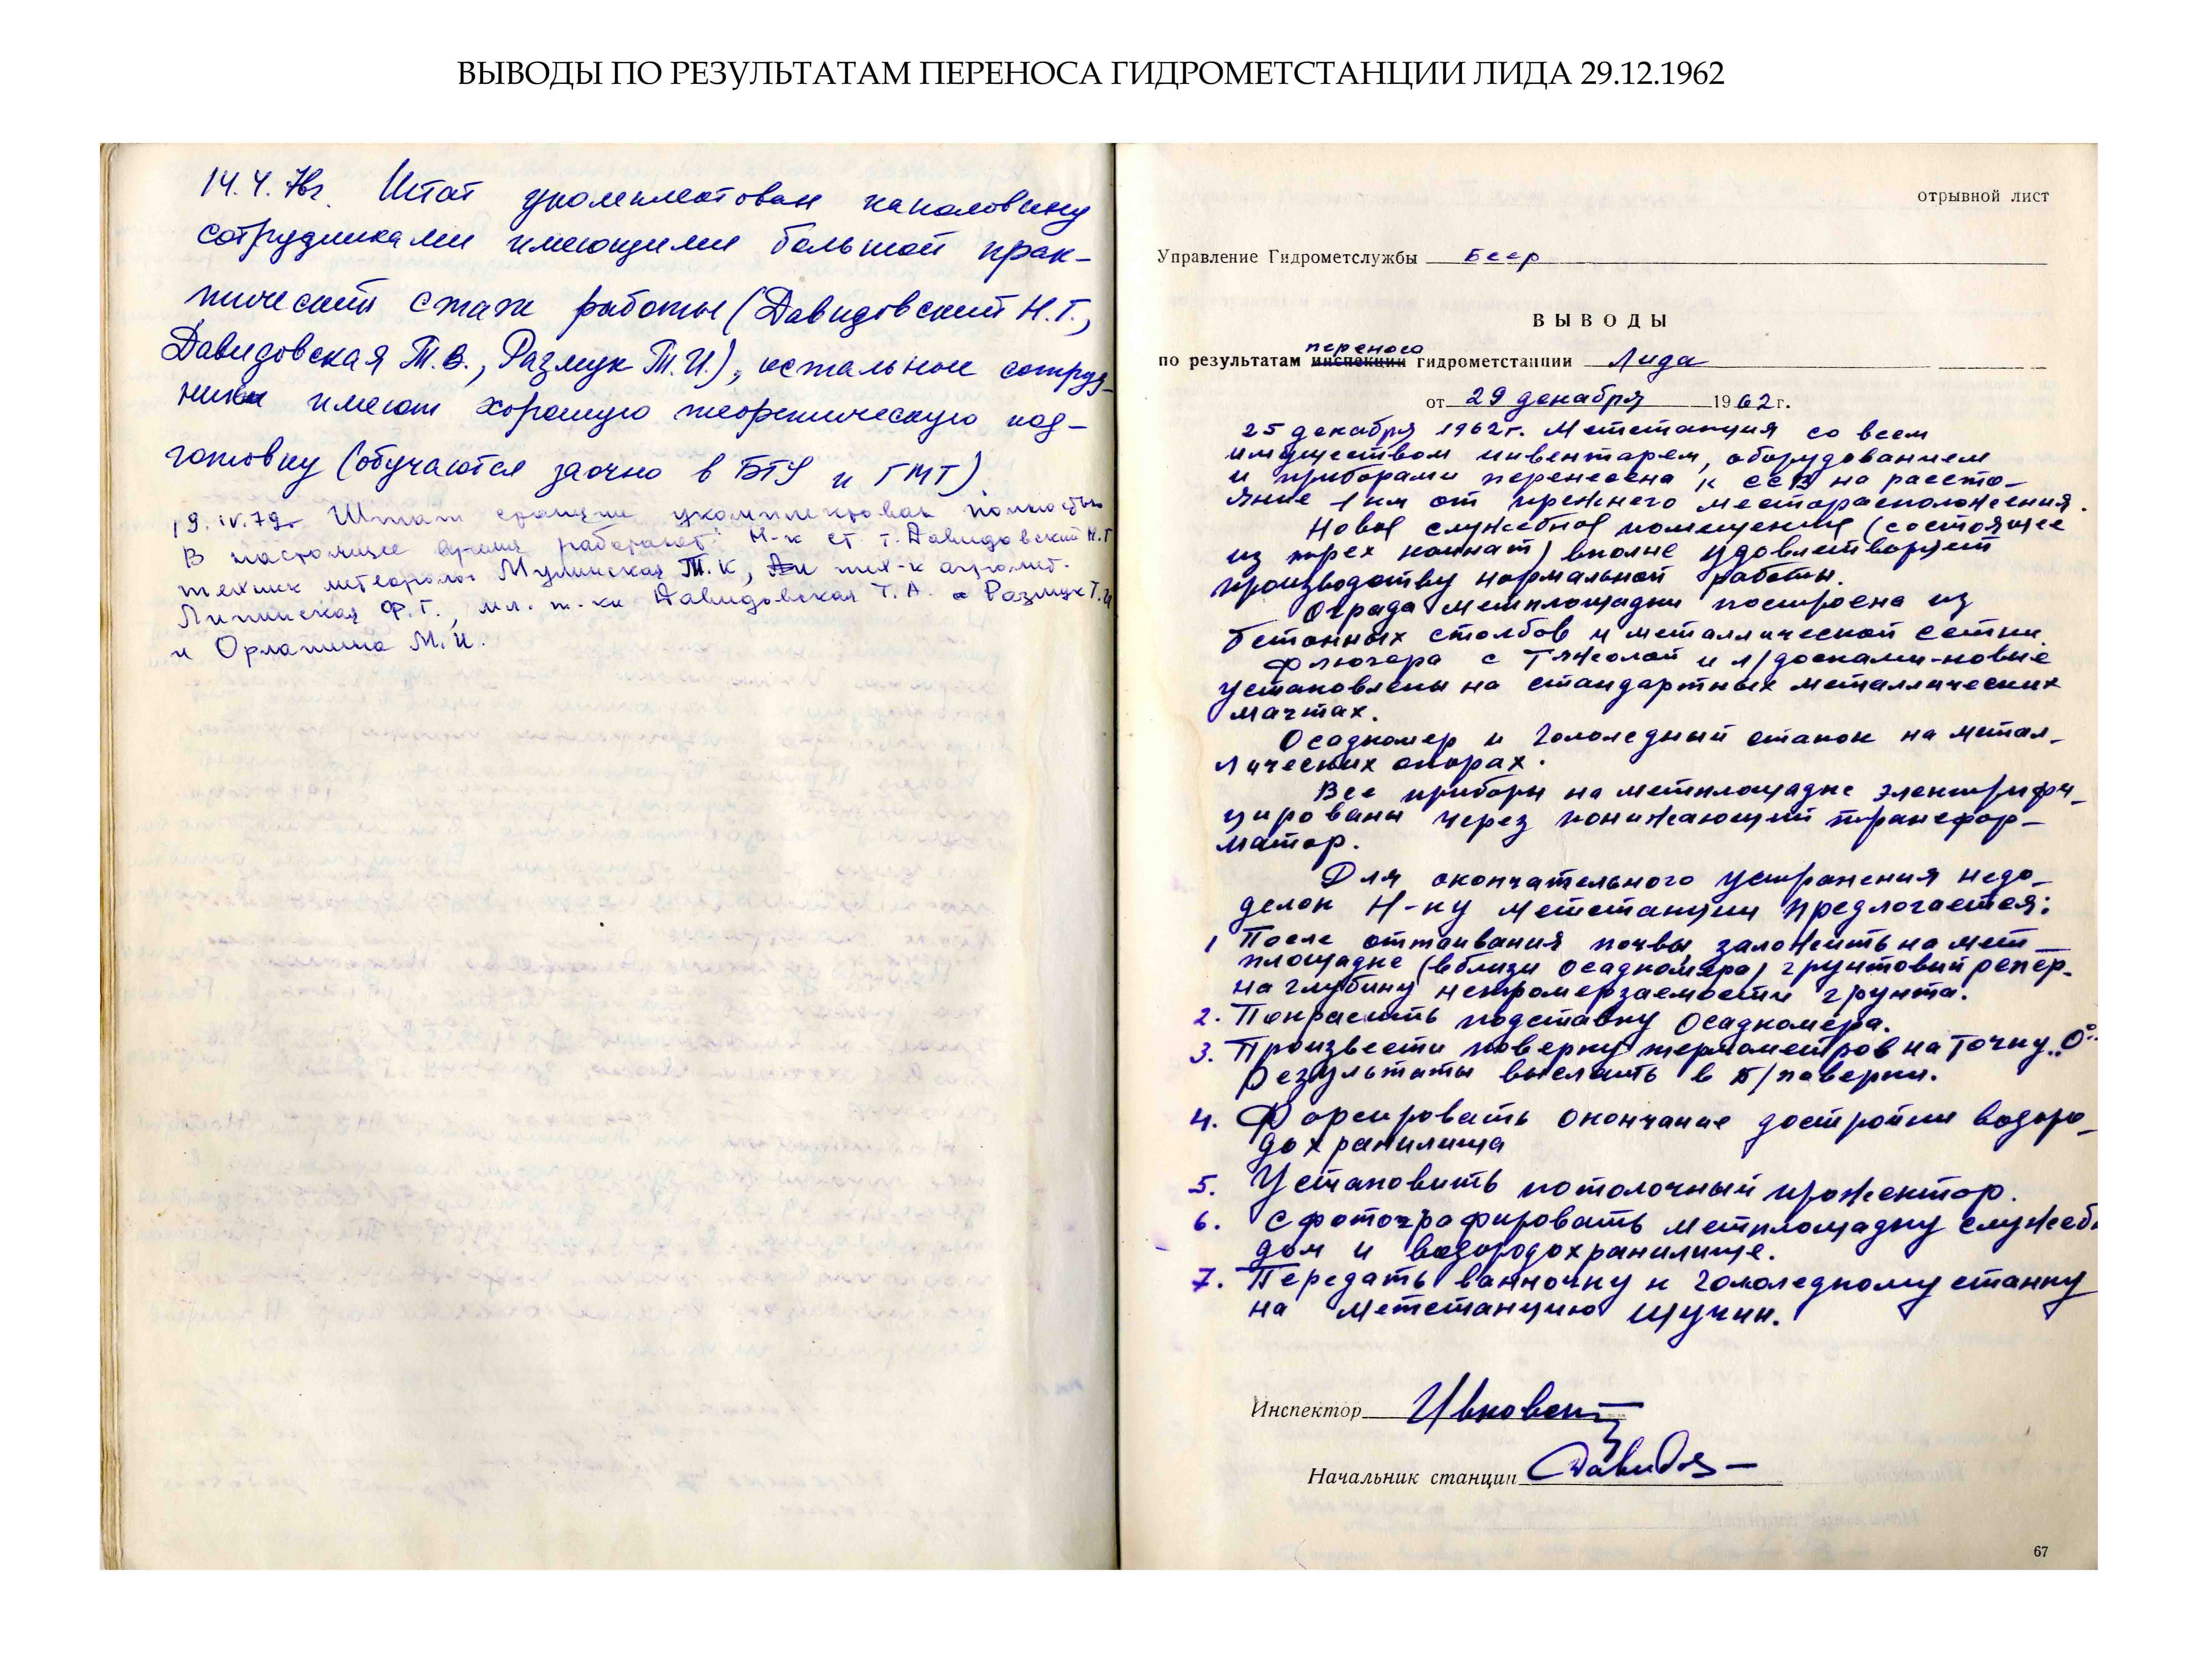 ВЫВОДЫ ПО РЕЗУЛЬТАТАМ ПЕРЕНОСА ГИДРОМЕТСТАНЦИИ ЛИДА 29.12.1962
14.4.76г. Штат укомплектован наполовину
сотрудниками имеющими большой прак-
тический стаж работы (Давидовский Н.Г.,
Давидовская Т.В., Размук Т.И.), остальные сотруд-
ники имеют хорошую теоретическую под-
готовку (обучаются заочно в БГУ и ГМТ).
19.IV.79г Штат станции укомплектован полностью
В настоящее время работают: Н-к ст. т. Давидовский Н.Г
техник метеоролог Мулинская Т.К, тех-к агромет.
Липинская Ф.Г., мл. т-ки Давидовская Т.А. Размук Т.И
и М.И.
отрывной лист
Управление Гидрометслужбы Беер
ВЫВОДЫ
переноса
по результатам инспекции гидрометстанции Лида
от 29 декабря 1962 г.
25 декабря 1962г. Метстанция со всем
имуществом инвентарем, оборудованием
и приборами перенесена к ССВ на рассто-
яние 1 км от прежнего месторасположения.
Новое служебное помещение (состоящее
из трех комнат) вполне удовлетворяет
производству нормальной работы.
Ограда метплощадки построена из
бетонных столбов и металлической сетки.
Флюгера с тяжолой и л/досками-новые
установлены на стандартных металлических
мачтах.
Осадкомер и гололедный станок на метал-
лических опорах.
Все приборы на метплощадке электрифи-
цированы через понижающий трансфор-
матор.
Для окончательного устранения недо-
делок Н-ку метстанции предлогается:
1 После оттаивания почвы заложить на мет-
площадке (вблизи осадкомера) грунтовый репер-
на глубину непромерзаемости грунта.
2. Покрасить подставку осадкомера.
3. Произвести поверку термометров на точку „0°"
Результаты выслать в Б/поверки.
4. Форсировать окончание достройки водоро-
дохранилища
5. Установить потолочный прожектор.
6. Сфотографировать метплощадку служебн
дом и водородохранилище.
7. Передать ванночку к гололедному станку
на метстанцию Щучин.
Инспектор
Начальник станции
67